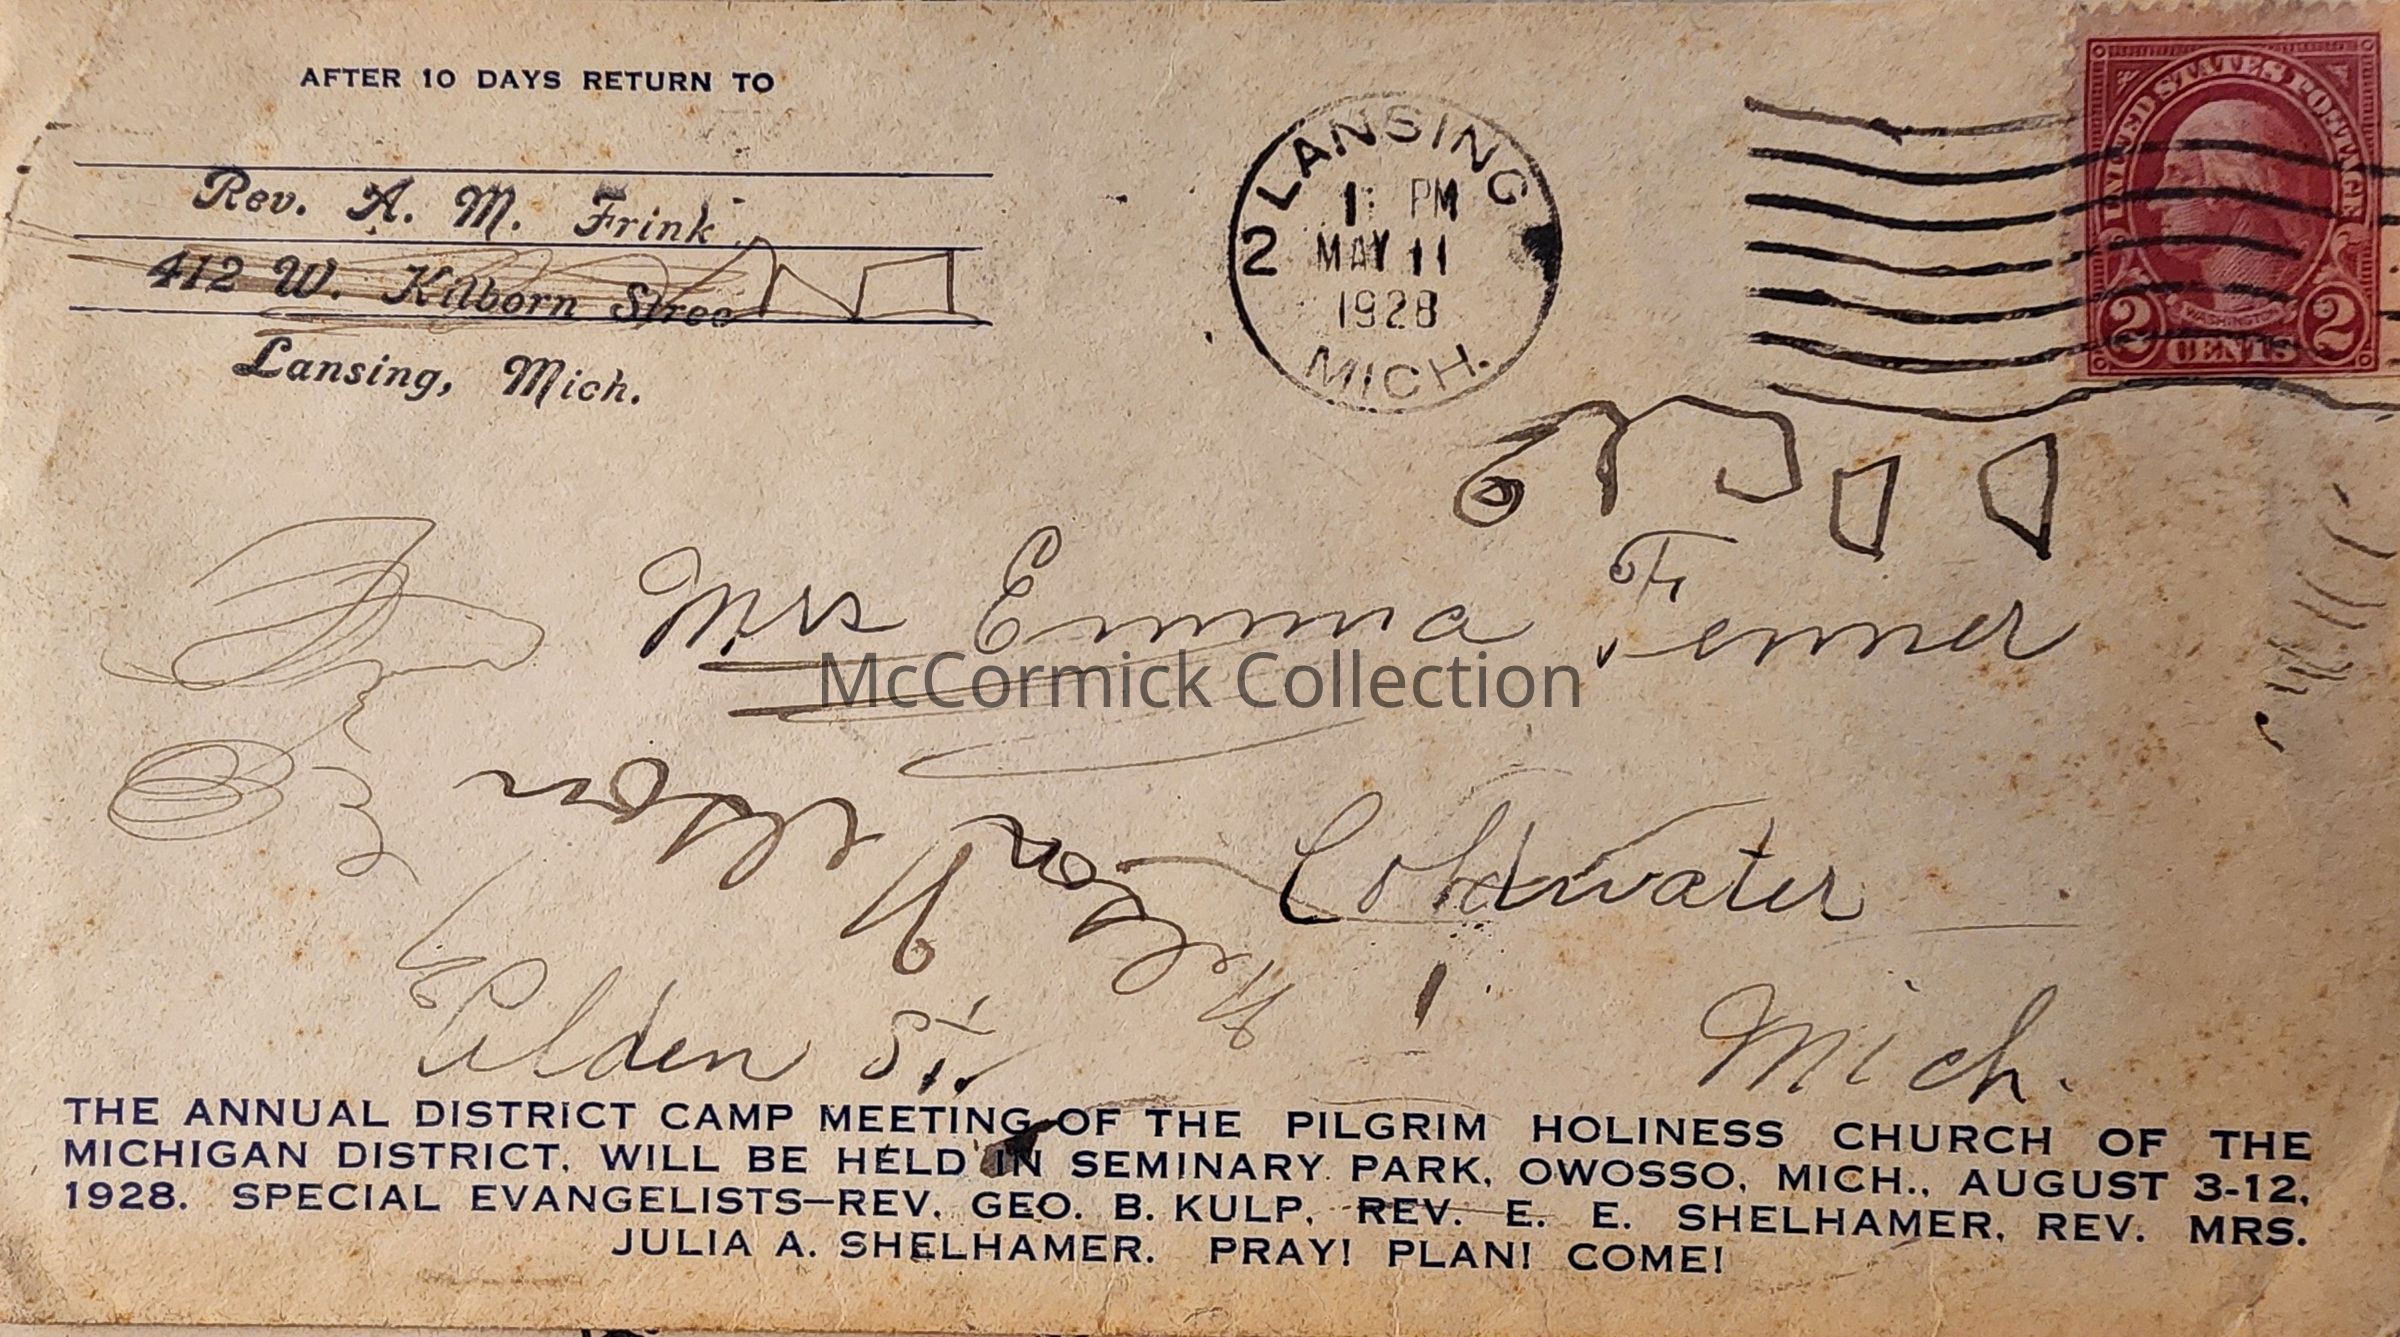 AFTER 10 DAYS RETURN TO
Rev. A. M. Frink
412 W. Kilborn Stree
Lansing, Mich.
LANSING
2
1 PM
MAY 11
1928
MICH.
UNITED STATES POSTAGE
WASHINGTON
2 CENTS 2
Mrs Emma Fenner
McCormick Collection
Coldwater
Nelson
Helen
Mich.
St.
THE ANNUAL DISTRICT CAMP MEETING OF THE PILGRIM HOLINESS CHURCH OF THE
MICHIGAN DISTRICT, WILL BE HELD IN SEMINARY PARK, OWOSSO, MICH., AUGUST 3-12,
1928. SPECIAL EVANGELISTS—REV. GEO. B. KULP, REV. E. E. SHELHAMER, REV. MRS.
JULIA A. SHELHAMER. PRAY! PLAN! COME!